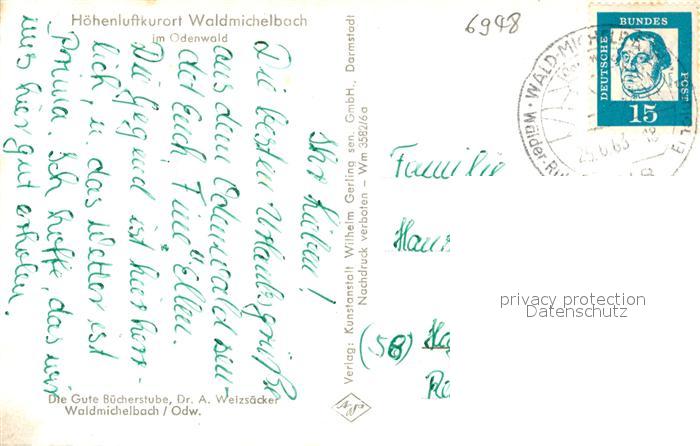 Höhenluftkurort Waldmichelbach
im Odenwald
6948
DEUTSCHE BUNDESPOST
15
WALD-MICHELBACH
25.6.63
Ihr Lieben!
Die besten Urlaubsgrüße
aus dem Odenwald sen-
det Euch, Tine u. Ellen.
Die Gegend ist hier herr-
lich, u das Wetter ist
Prima. Ich hoffe, das wir
uns hier gut erholen.
Die Gute Bücherstube, Dr. A. Weizsäcker
Waldmichelbach / Odw.
Verlag: Kunstanstalt Wilhelm Gerling sen. GmbH., Darmstadt
Nachdruck verboten — Wm 3582/6a
Familie
Hans
(58) Ha
privacy protection
Datenschutz